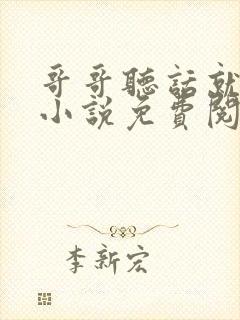 哥哥聽話就
小說免費閱
李新宏